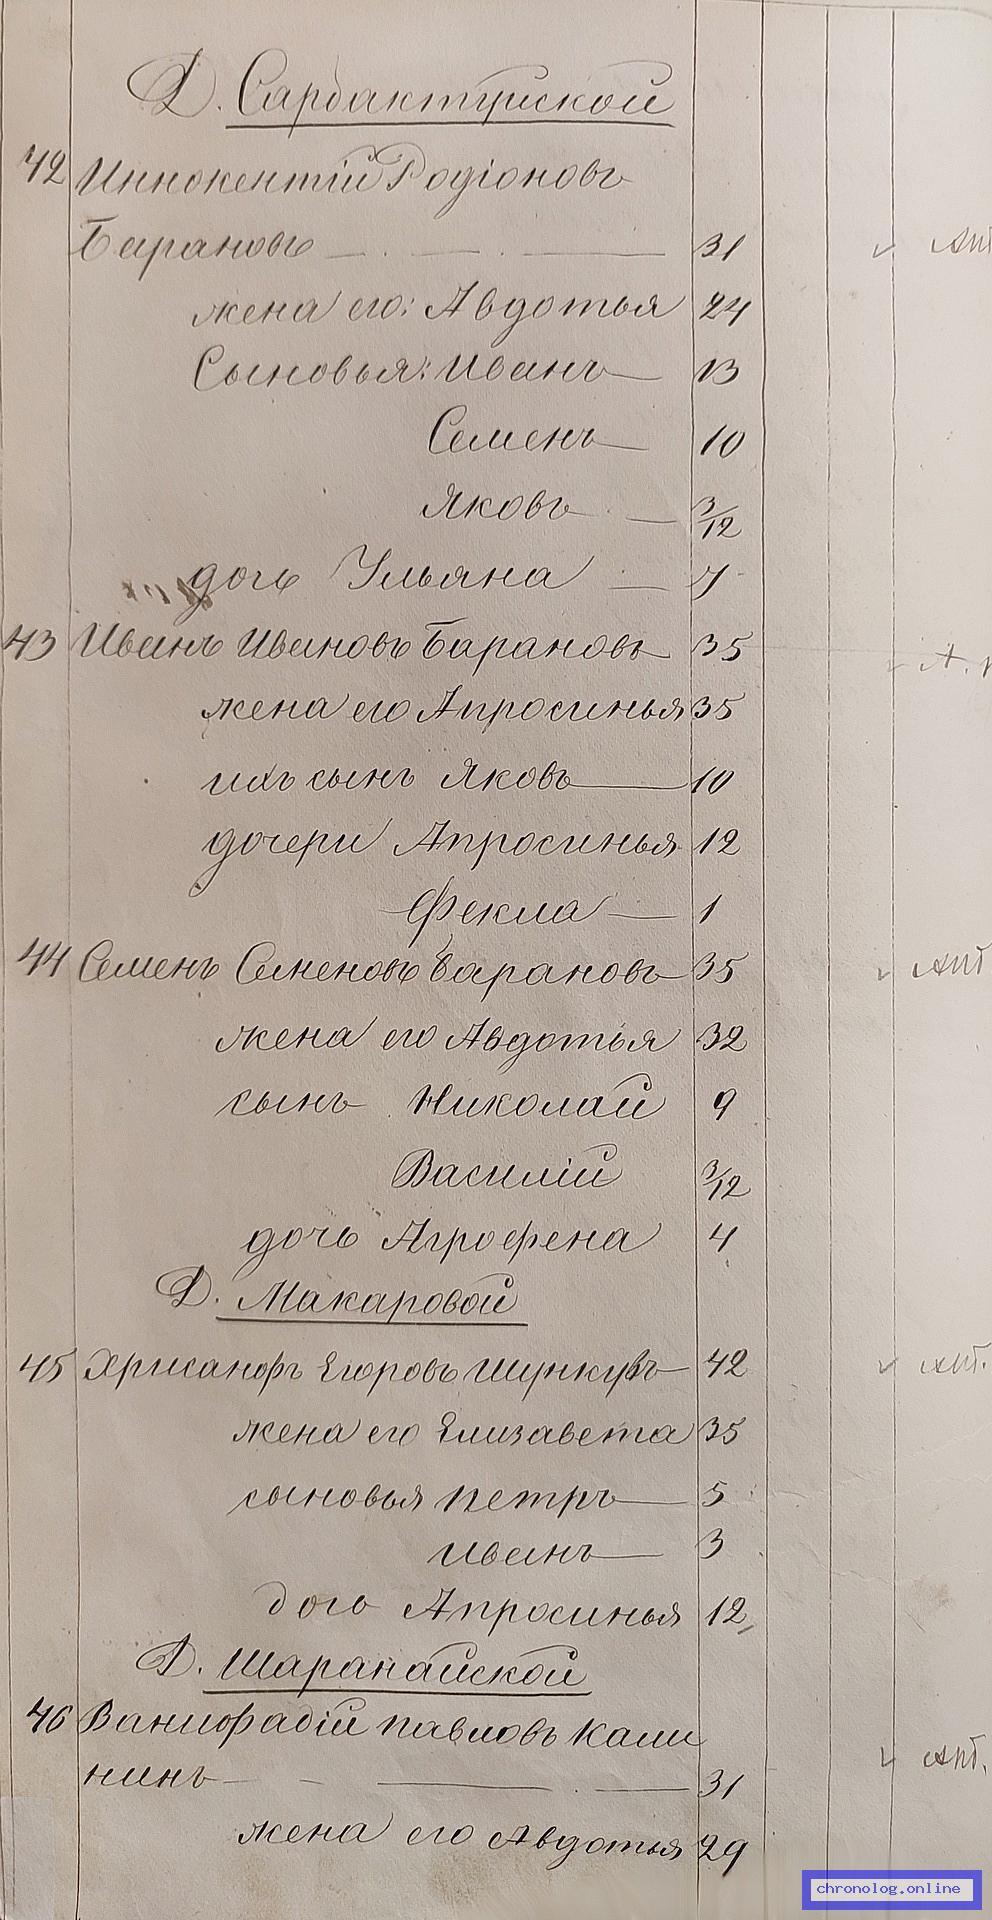 Д. Сарбактуйской
42 Иннокентій Родіоновъ
Барановъ 31
жена его: Авдотья 24
Сыновья: Иванъ 13
Семенъ 10
Яковъ 3/12
дочь Ульяна 7
43 Иванъ Ивановъ Барановъ 35
жена его Апросинья 35
ихъ сынъ Яковъ 10
дочери Апросинья 12
Фекла 1
44 Семенъ Семеновъ Барановъ 35
жена его Авдотья 32
сынъ Николай 9
Василій 3/12
дочь Агрофена 4
Д. Макаровой
45 Хрисанфъ Егоровъ Шункувъ 42
жена его Елизавета 35
сыновья Петръ 5
Иванъ 3
дочь Апросинья 12
Д. Шаранайской
46 Ванифадій Павловъ Кали
нинъ 31
жена его Авдотья 29
chronolog.online